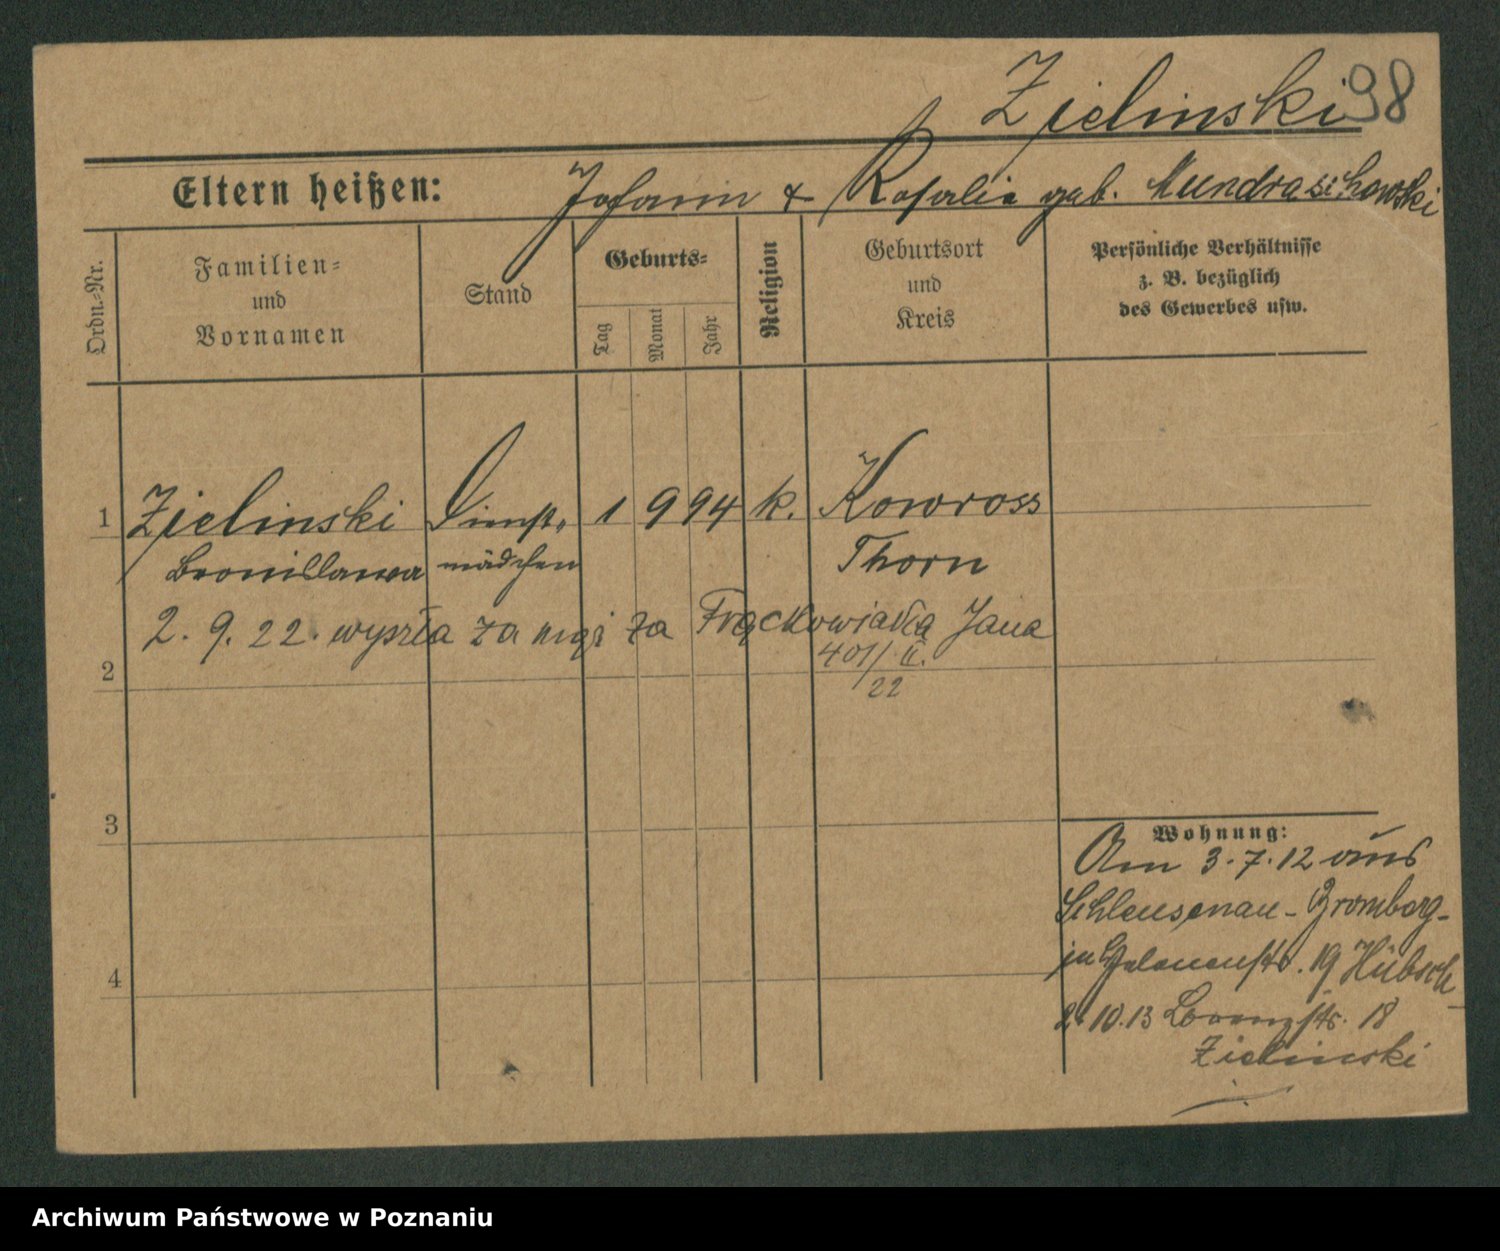 Zielinski 98
Eltern heißen: Johann & Rosalie geb. Mundraschowski
Ordn.-Nr.
Familien-
und
Vornamen
Stand
Geburts-
Tag
Monat
Jahr
Religion
Geburtsort
und
Kreis
Persönliche Verhältnisse
z. B. bezüglich
des Gewerbes usw.
1 Zielinski Dienst- 1 9 94 k. Kowross
Bronislawa mädchen Thorn
2. 9. 22. wyszła za mąż za Frąckowiaka Jana
401/ II.
22
2
3
4
Wohnung:
Am 3.7.12 aus
Schleusenau-Bromberg-
19 Hübsch
2.10.13 18
Zielinski
Archiwum Państwowe w Poznaniu